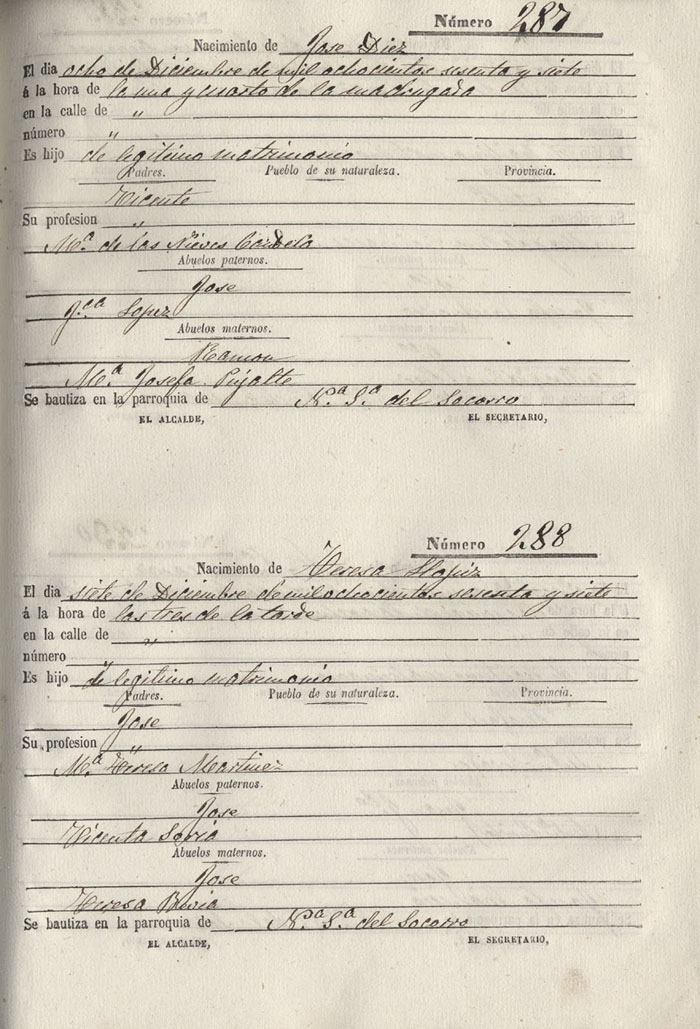 Número 287
Nacimiento de Jose Diez
El dia ocho de Diciembre de mil ochocientos sesenta y siete
á la hora de la una y cuarto de la madrugada
en la calle de "
número "
Es hijo de legitimo matrimonio
Padres. Pueblo de su naturaleza. Provincia.
Vicente
Su profesion "
Mª de las Nieves
Abuelos paternos.
Jose
Lopez
Abuelos maternos.
Ramon
Mª Josefa Pujalte
Se bautiza en la parroquia de Nª Sª del Socorro
EL ALCALDE, EL SECRETARIO,
Número 288
Nacimiento de Teresa
El dia siete de Diciembre de mil ochocientos sesenta y siete
á la hora de las tres de la tarde
en la calle de "
número "
Es hijo de legitimo matrimonio
Padres. Pueblo de su naturaleza. Provincia.
Jose
Su profesion "
Mª Teresa Martinez
Abuelos paternos.
Jose
Vicenta Soria
Abuelos maternos.
Jose
Teresa
Se bautiza en la parroquia de Nª Sª del Socorro
EL ALCALDE, EL SECRETARIO,